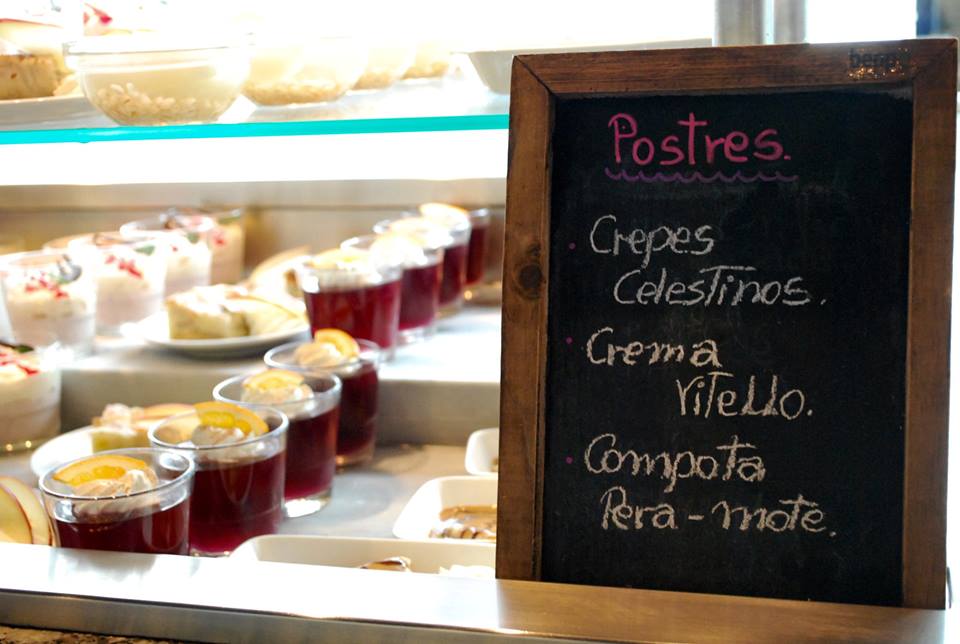 Postres.
Crepes
Celestinos.
Crema
Vitello.
Compota
Pera-mote.